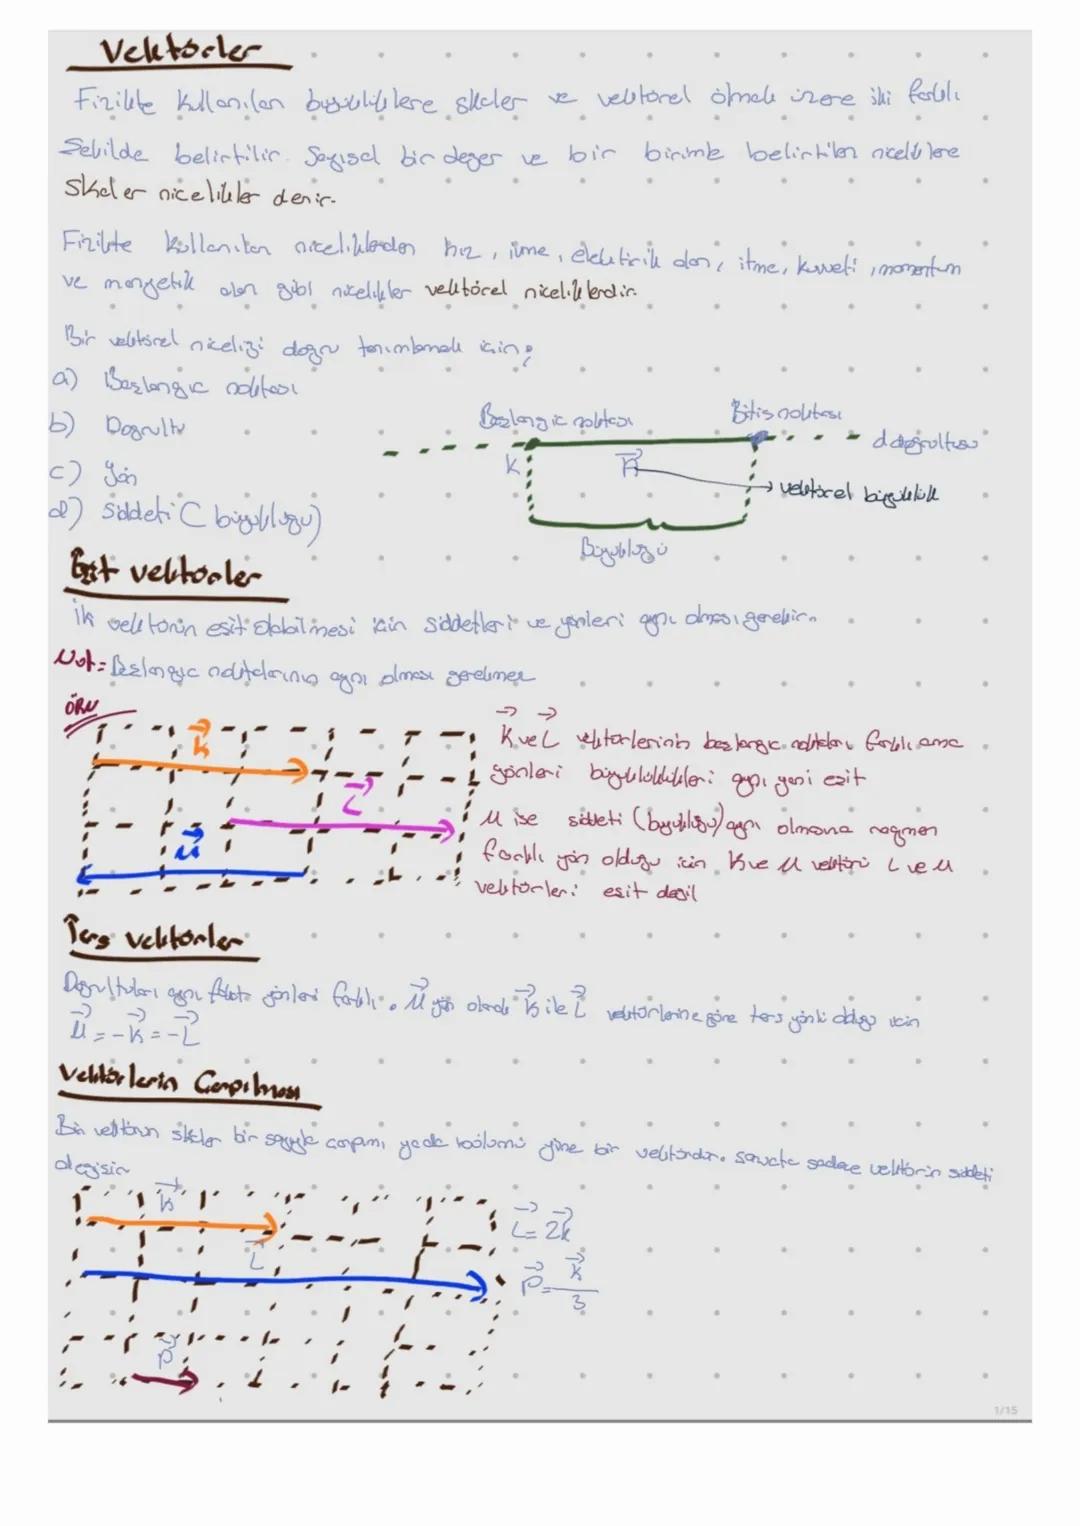 Vektörler
Fizikte kullanılan büyüklüklere skaler ve vektörel olmak üzere iki farklı
Şekilde belirtilir. Sayısal bir değer ve bir birimle belirtilen niceliklere
Skaler nicelikler denir.
Fizikte kullanılan niceliklerden hız, ivme, elektirik alan, itme, kuvveti, momentum
ve manyetik alan gibi nicelikler vektörel niceliklerdir.
Bir vektörel niceliği doğru tanımlamak için;
a) Başlangıç noktası
b) Doğrultu
c) Yön
d) Şiddeti (büyüklüğü)
Başlangıç noktası
Bitiş noktası
d doğrultusu
K
K
vektörel büyüklük
Büyüklüğü
Eşit vektörler
İki vektörün eşit olabilmesi için şiddetleri ve yönleri aynı olması gerekir.
Not = Başlangıç noktalarının aynı olması gerekmez
ÖRN
K
L
M
K ve L vektörlerinin başlangıç noktaları farklı ama
yönleri büyüklüklükleri aynı yani eşit
M ise şiddeti (büyüklüğü) aynı olmasına rağmen
farklı yön olduğu için K ve M vektörü L ve M
vektörleri eşit değil
Ters vektörler
Doğrultuları aynı fakat yönleri farklı. M yön olarak K ile L vektörlerine göre ters yönlü olduğu için
M = -K = -L
Vektörlerin Çarpılması
Bir vektörün skaler bir sayıyla çarpımı yada bölümü yine bir vektördür. sonuçta sadece vektörün şiddeti
değişir
K
L
P
L = 2K
P = K/3
1/15